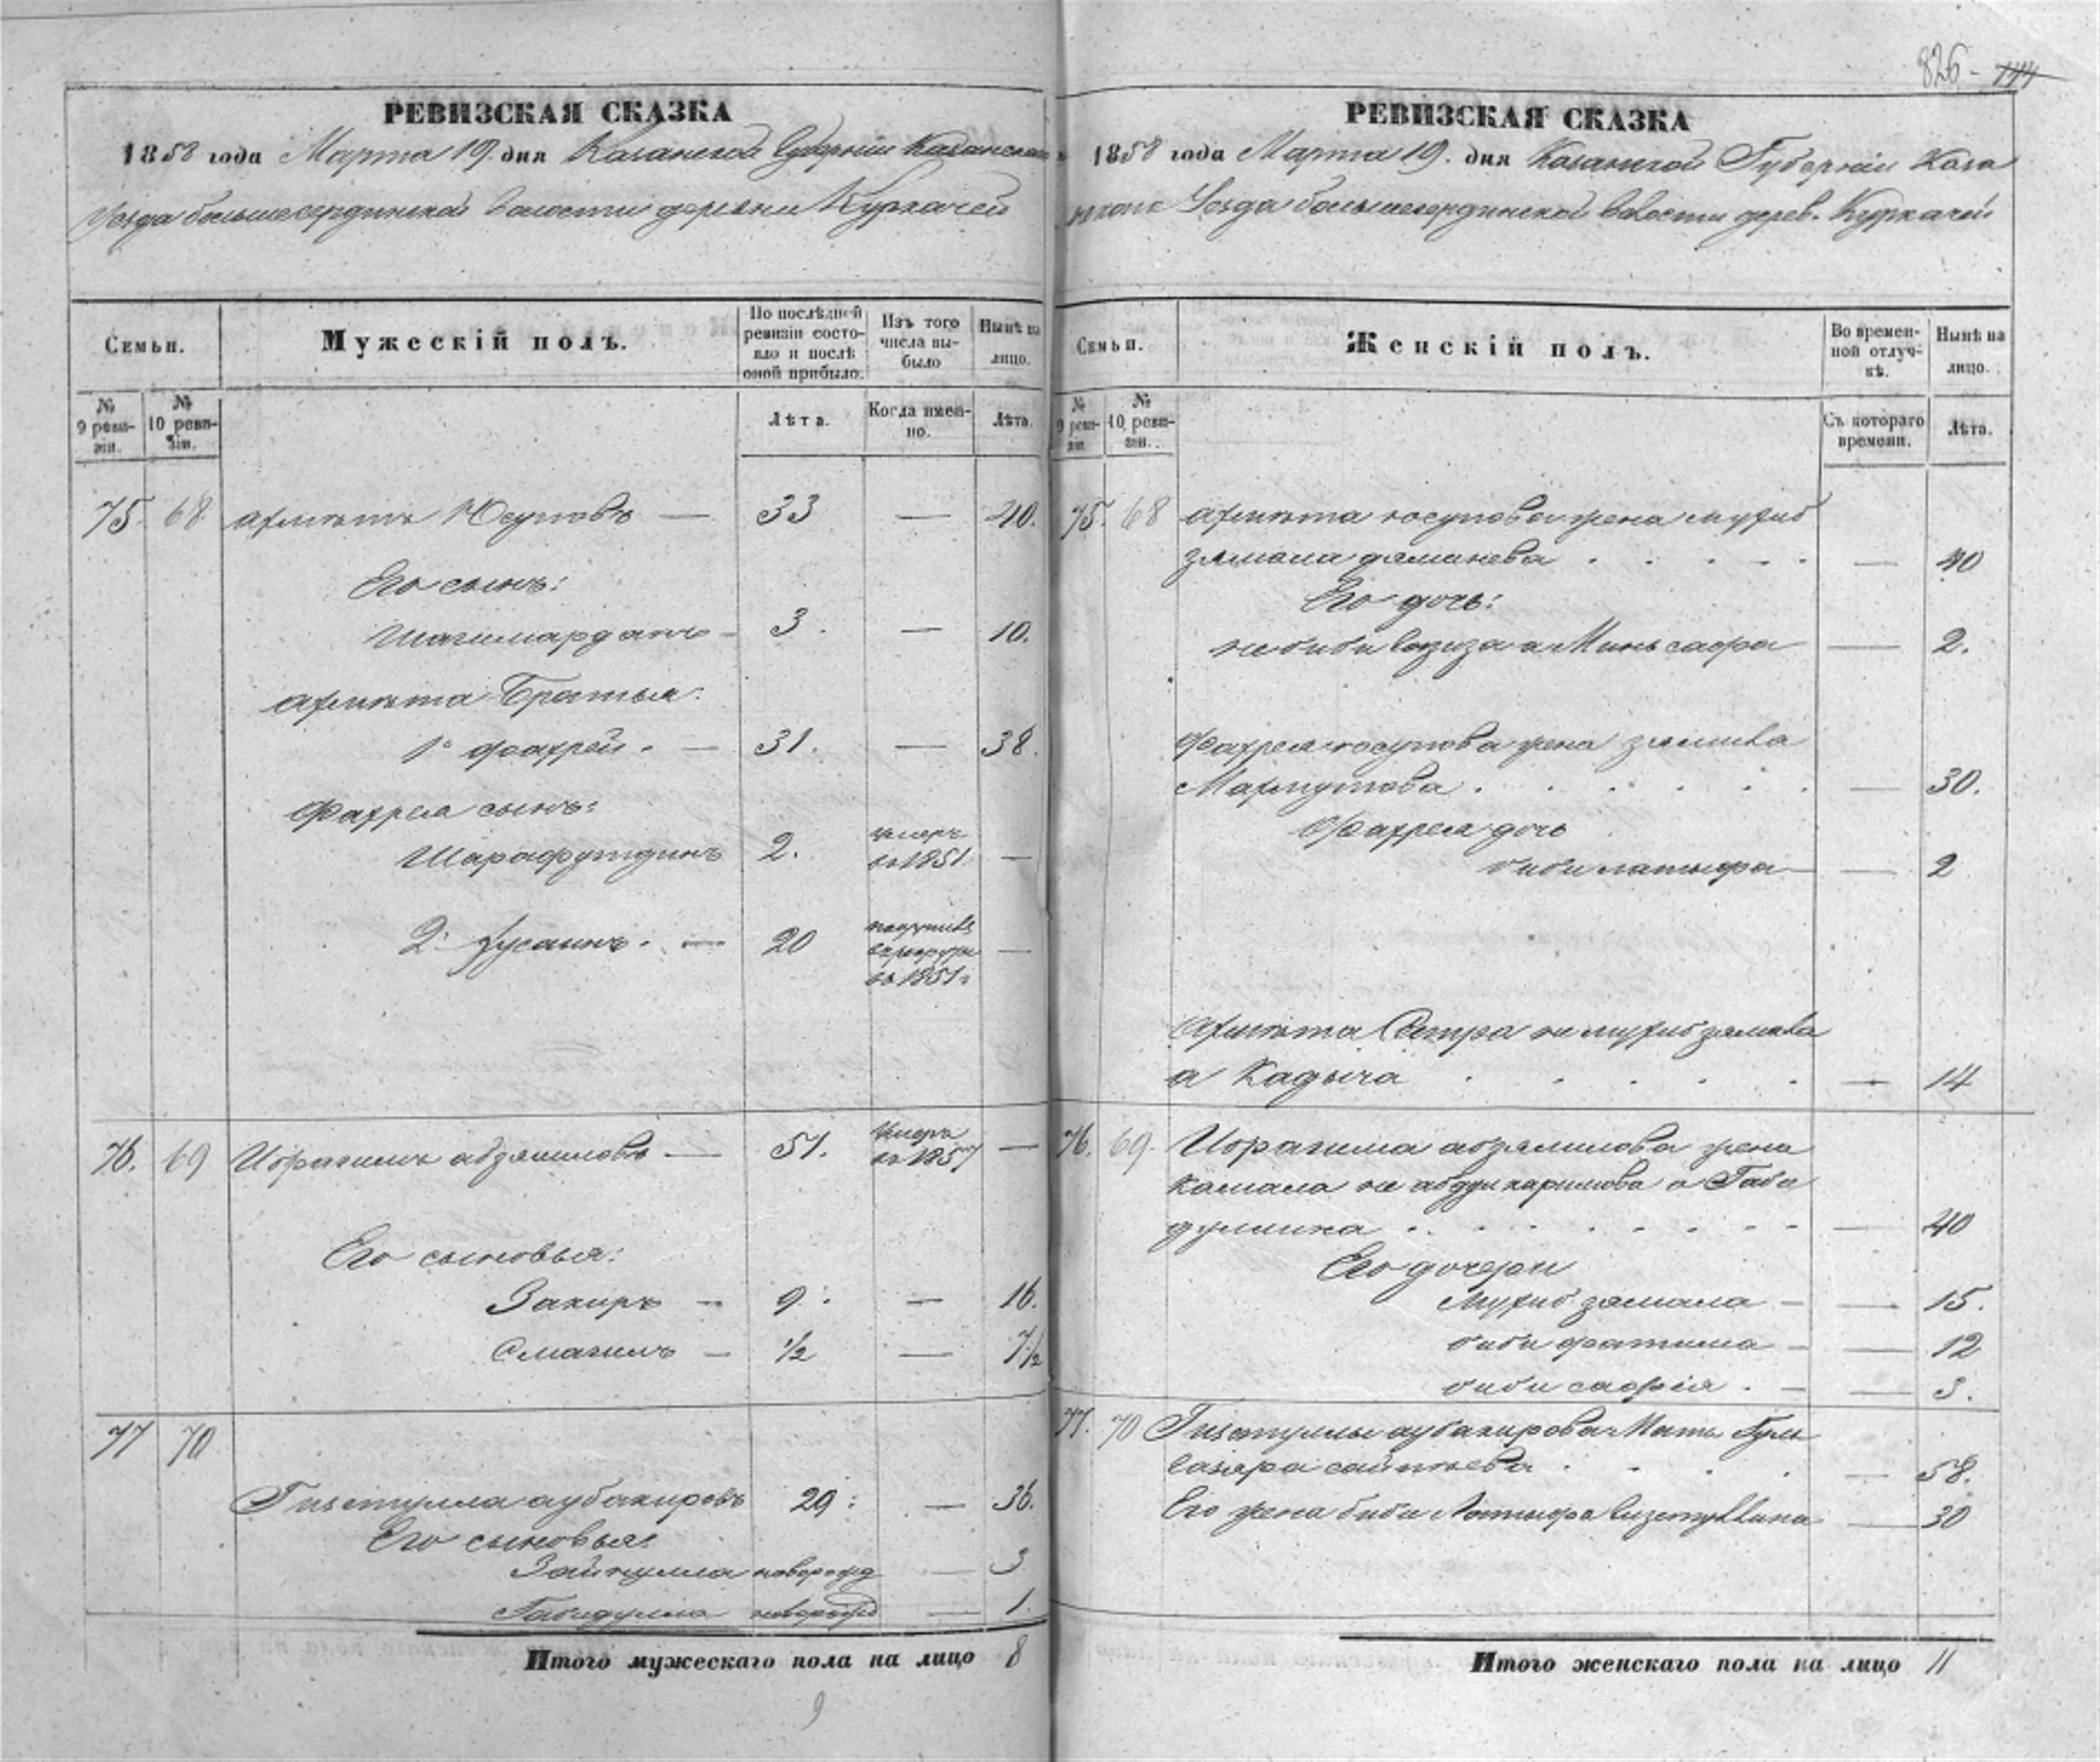 826 - 777
РЕВИЗСКАЯ СКАЗКА
1858 года Марта 19. дня Казанской Губерніи Казанскаго
Уезда большесердинской волости деревни Куркачей
Семьи.
Мужескій полъ.
По послѣдней ревизіи состояло и послѣ оной прибыло.
Изъ того числа выбыло
Нынѣ на лицо.
№ 9 ревизіи.
№ 10 ревизіи.
Лѣта.
Когда именно.
Лѣта.
75. 68. Ахметъ Юсуповъ — 33 — 40.
Его сынъ:
Шагимарданъ — 3. — 10.
Ахмета Братья:
1й Фахрей. — 31. — 38.
Фахрея сынъ:
Шарафутдинъ 2. умеръ въ 1851 —
2й Хусаинъ. — 20
въ 1851г —
76. 69 Ибрагимъ абзялиловъ — 51. умеръ въ 1857 —
Его сыновья:
Закиръ — 9. — 16.
Смагилъ — 1/2 — 7 1/2
77 70
Гизетулла аубакировъ 29: — 36.
Его сыновья:
Зайнулла новорожд — 3
Габидулла новорожд — 1.
Итого мужескаго пола на лицо 8
9
РЕВИЗСКАЯ СКАЗКА
1858 года Марта 19. дня Казанской Губерніи Каза
нскаго Уезда большесердинской волости дерев. Куркачей
Семьи.
Женскій полъ.
Во временной отлучкѣ.
Нынѣ на лицо.
№ 9 ревизіи
№ 10 ревизіи.
Съ котораго времени.
Лѣта.
75. 68 Ахмета юсупова жена Мухиб
зямала — 40
Его дочь:
не биби а Миньсафа — 2.
Фахрея юсупова жена
Махмутова — 30.
Фахрея дочь
биби латыфа — 2
Ахмета Сестра не мухиб зямала
а Кадыча — 14
76. 69. Ибрагима абзялилова жена
Камала не абдулкаримова а Габи
дуллина — 40
Его дочери
Мухиб зямала — 15.
биби фатыма — 12
биби сафія. — 3.
77. 70 Гизетуллы аубакирова Мать Гуль
— 58.
Его жена биби Латыфа — 30
Итого женскаго пола на лицо 11